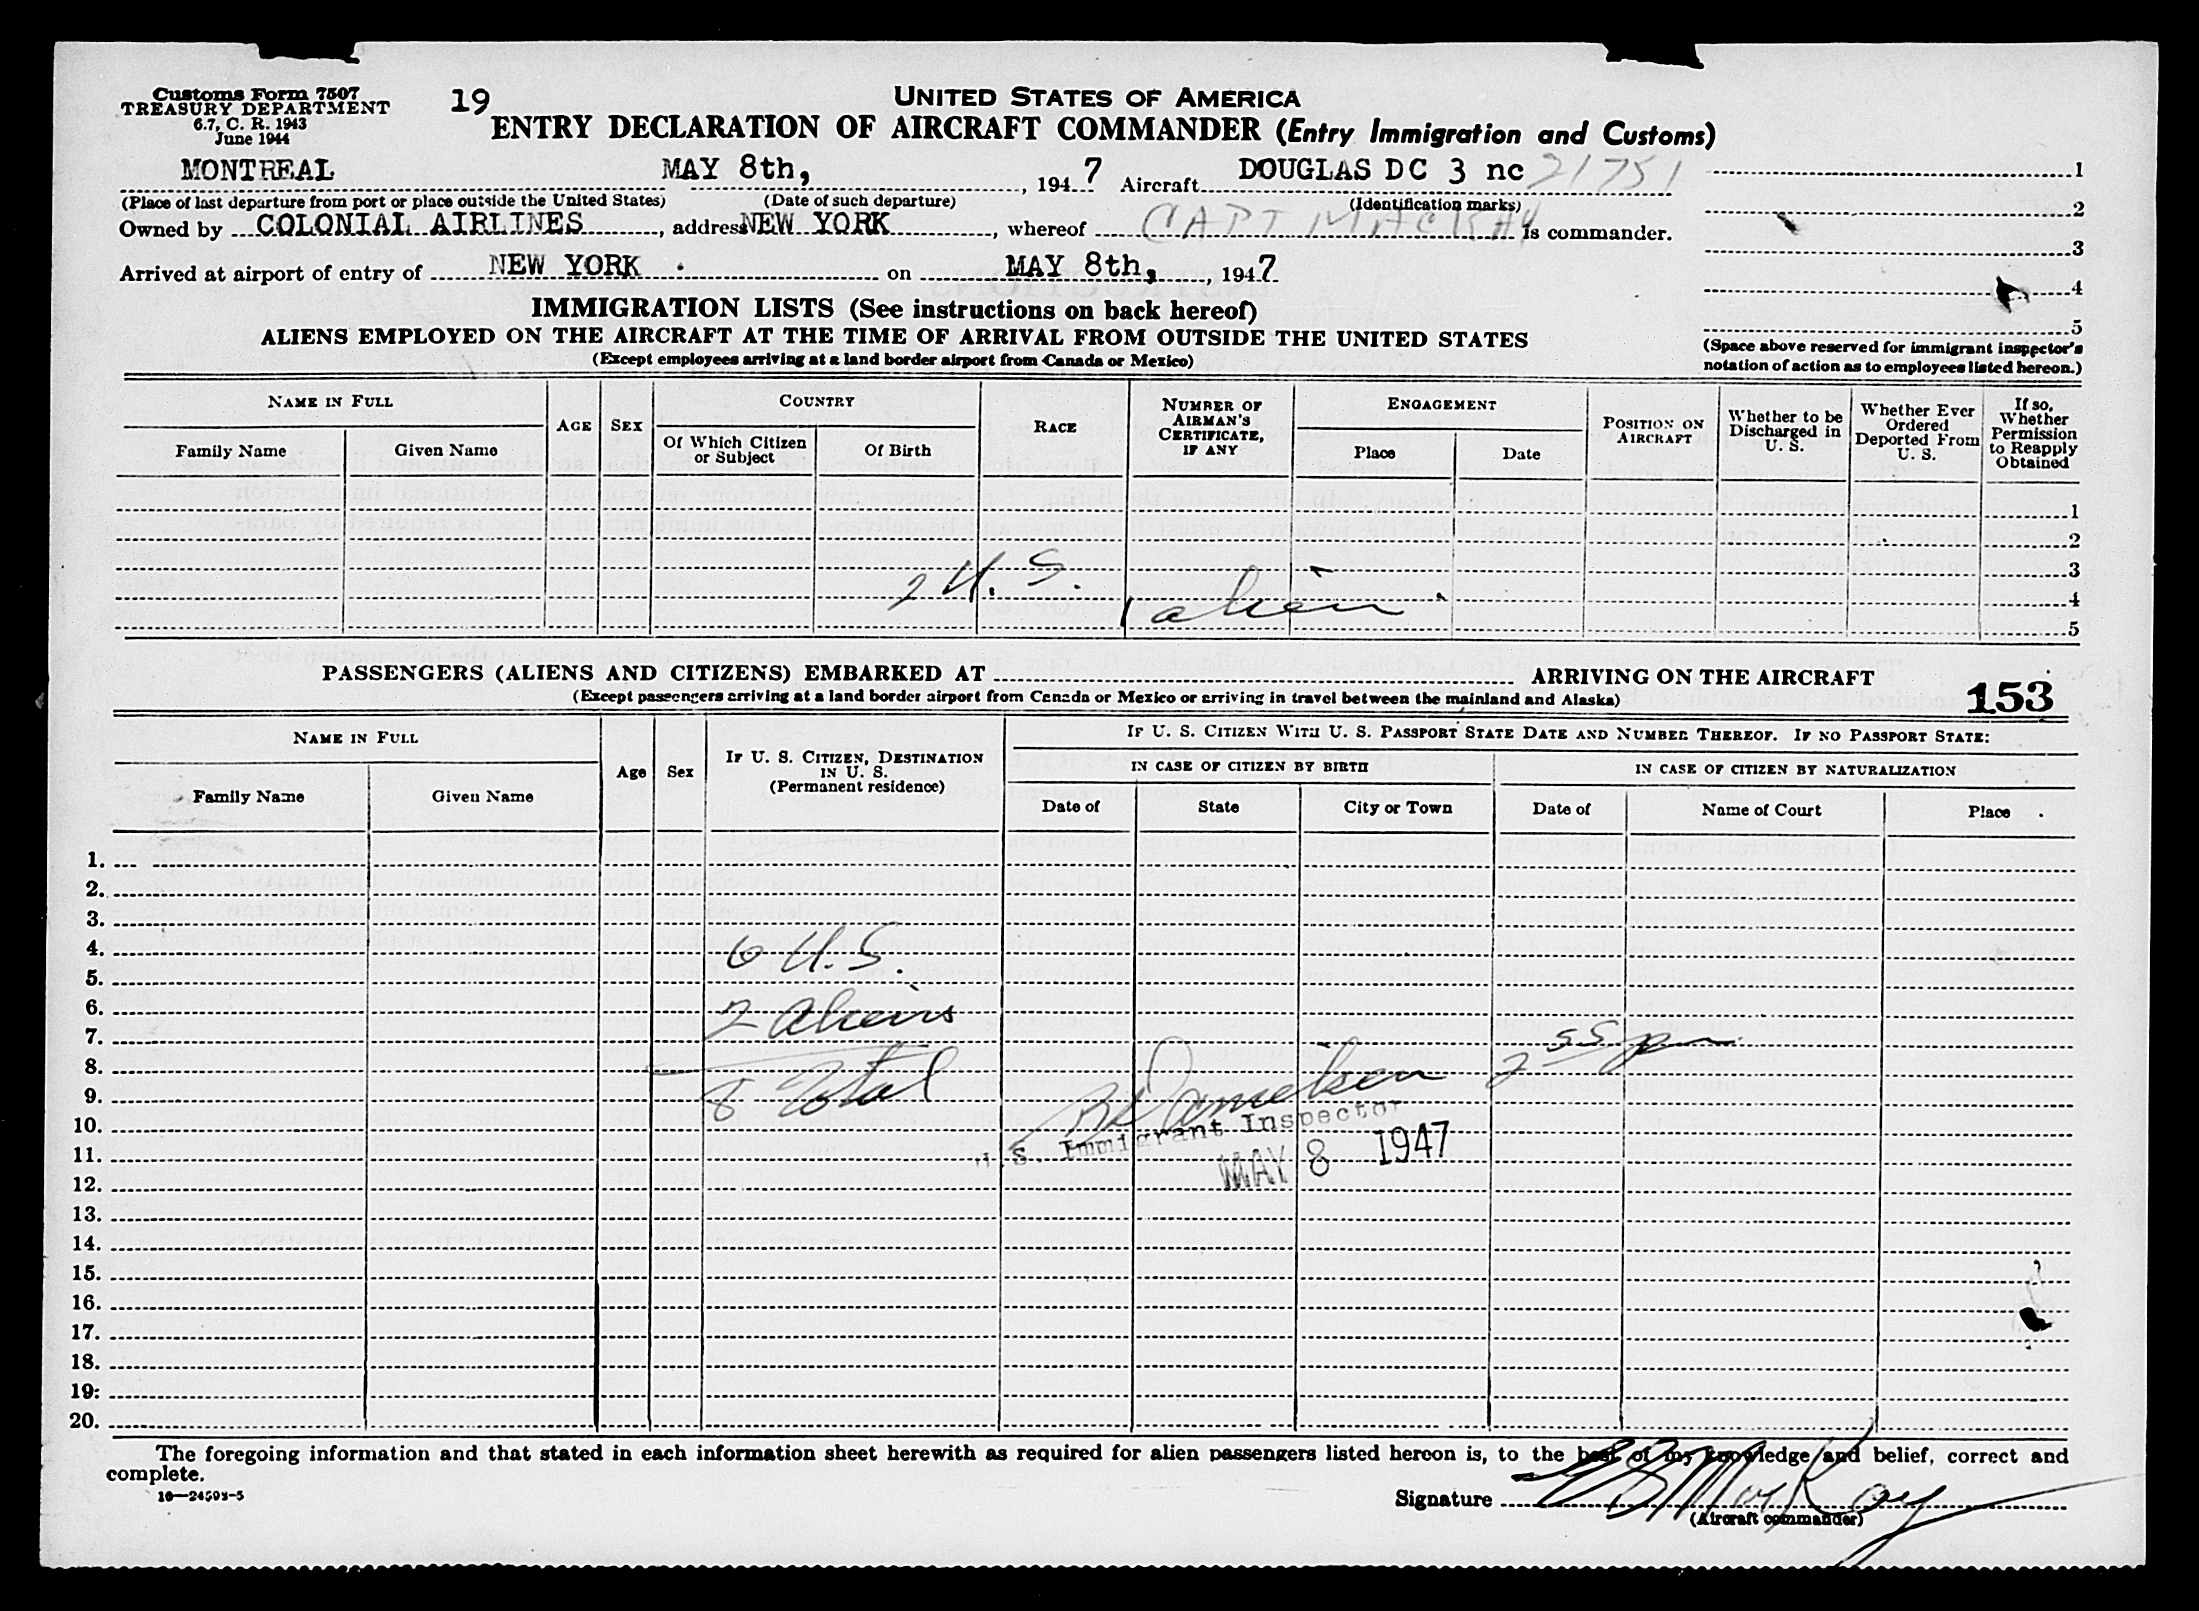 Customs Form 7507
TREASURY DEPARTMENT
6.7, C. R. 1943
June 1944
19
UNITED STATES OF AMERICA
ENTRY DECLARATION OF AIRCRAFT COMMANDER (Entry Immigration and Customs)
MONTREAL MAY 8th, , 1947 Aircraft DOUGLAS DC 3 nc 21751
(Place of last departure from port or place outside the United States) (Date of such departure) (Identification marks)
Owned by COLONIAL AIRLINES, address NEW YORK, whereof CAPT MACKAY is commander.
Arrived at airport of entry of NEW YORK . on MAY 8th, , 1947
1
2
3
4
5
(Space above reserved for immigrant inspector's
notation of action as to employees listed hereon.)
IMMIGRATION LISTS (See instructions on back hereof)
ALIENS EMPLOYED ON THE AIRCRAFT AT THE TIME OF ARRIVAL FROM OUTSIDE THE UNITED STATES
(Except employees arriving at a land border airport from Canada or Mexico)
NAME IN FULL
Family Name Given Name
AGE SEX
COUNTRY
Of Which Citizen or Subject Of Birth
RACE
NUMBER OF AIRMAN'S CERTIFICATE, IF ANY
ENGAGEMENT
Place Date
POSITION ON AIRCRAFT
Whether to be Discharged in U. S.
Whether Ever Ordered Deported From U. S.
If so, Whether Permission to Reapply Obtained
1
2
3
4
5
2 U.S.
1 alien
PASSENGERS (ALIENS AND CITIZENS) EMBARKED AT ARRIVING ON THE AIRCRAFT
(Except passengers arriving at a land border airport from Canada or Mexico or arriving in travel between the mainland and Alaska)
153
NAME IN FULL
Family Name Given Name
Age Sex
IF U. S. CITIZEN, DESTINATION IN U. S.
(Permanent residence)
IF U. S. CITIZEN WITH U. S. PASSPORT STATE DATE AND NUMBER THEREOF. IF NO PASSPORT STATE:
IN CASE OF CITIZEN BY BIRTH IN CASE OF CITIZEN BY NATURALIZATION
Date of State City or Town Date of Name of Court Place
1.
2.
3.
4. 6 U.S.
5.
6. 2 Aliens
7. 2 55 pm
8.
9. 8 Total
10.
U.S. Immigrant Inspector
11.
MAY 8 1947
12.
13.
14.
15.
16.
17.
18.
19.
20.
The foregoing information and that stated in each information sheet herewith as required for alien passengers listed hereon is, to the best of my knowledge and belief, correct and
complete.
16—24593-5
Signature MacKay
(Aircraft commander)